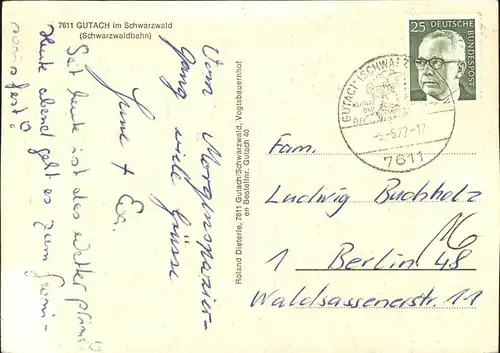 7611 GUTACH im Schwarzwald
(Schwarzwaldbahn)
Vom Morgenspazier-
gang viele Grüsse
Seit heute ist das Wetter prima
Heute abend geht es zum
Roland Dieterle, 7611 Gutach/Schwarzwald, Vogtsbauernhof
Bestellnr. Gutach 40
25 DEUTSCHE
BUNDESPOST
GUTACH (SCHWARZ
-5.72-17
7611
Fam.
Ludwig Buchholz
1 Berlin 48
Waldsassenerstr. 11